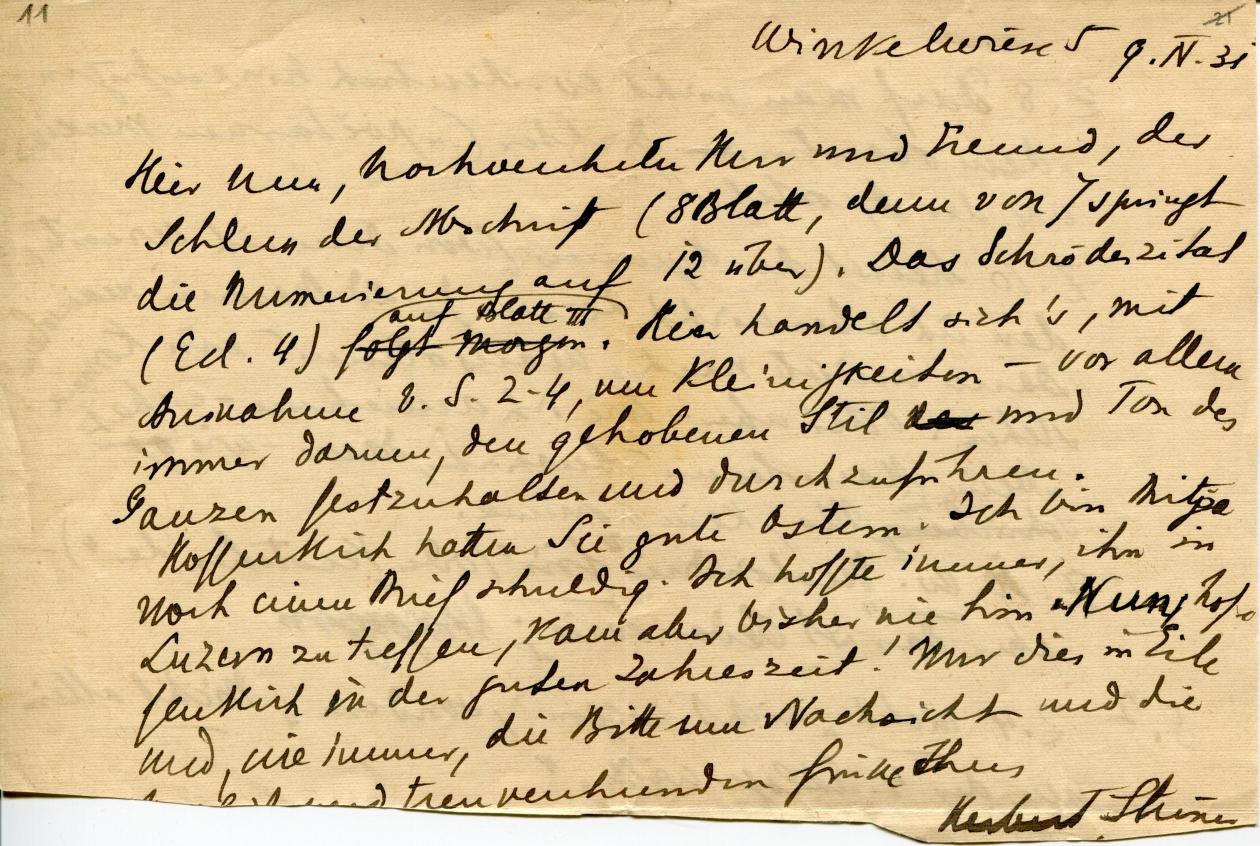 11
21
Winkelwiese 5 9. IV. 31
Hier nun, hochverehrter Herr und Freund, der
Schluss der Abschrift (8 Blatt, denn von 7 springt
die Numerierung auf 12 über). Das Schröderzitat
auf Blatt III
(Ecl. 4) folgt morgen. Hier handelt sich's, mit
Ausnahme v. S. 2-4, um Kleinigkeiten – vor allem
immer darum, den gehobenen Stil und Ton des
Ganzen festzuhalten und durchzuführen.
Hoffentlich hatten Sie gute Ostern. Ich bin
noch einen Brief schuldig. Ich hoffte immer, ihn in
Luzern zu treffen, kam aber bisher nie hin. Nun, hof-
fentlich in der guten Jahreszeit! Nur dies in Eile
und, wie immer, die Bitte um Nachsicht und die
und treuverehrenden Grüsse Ihres
Herbert Steiner